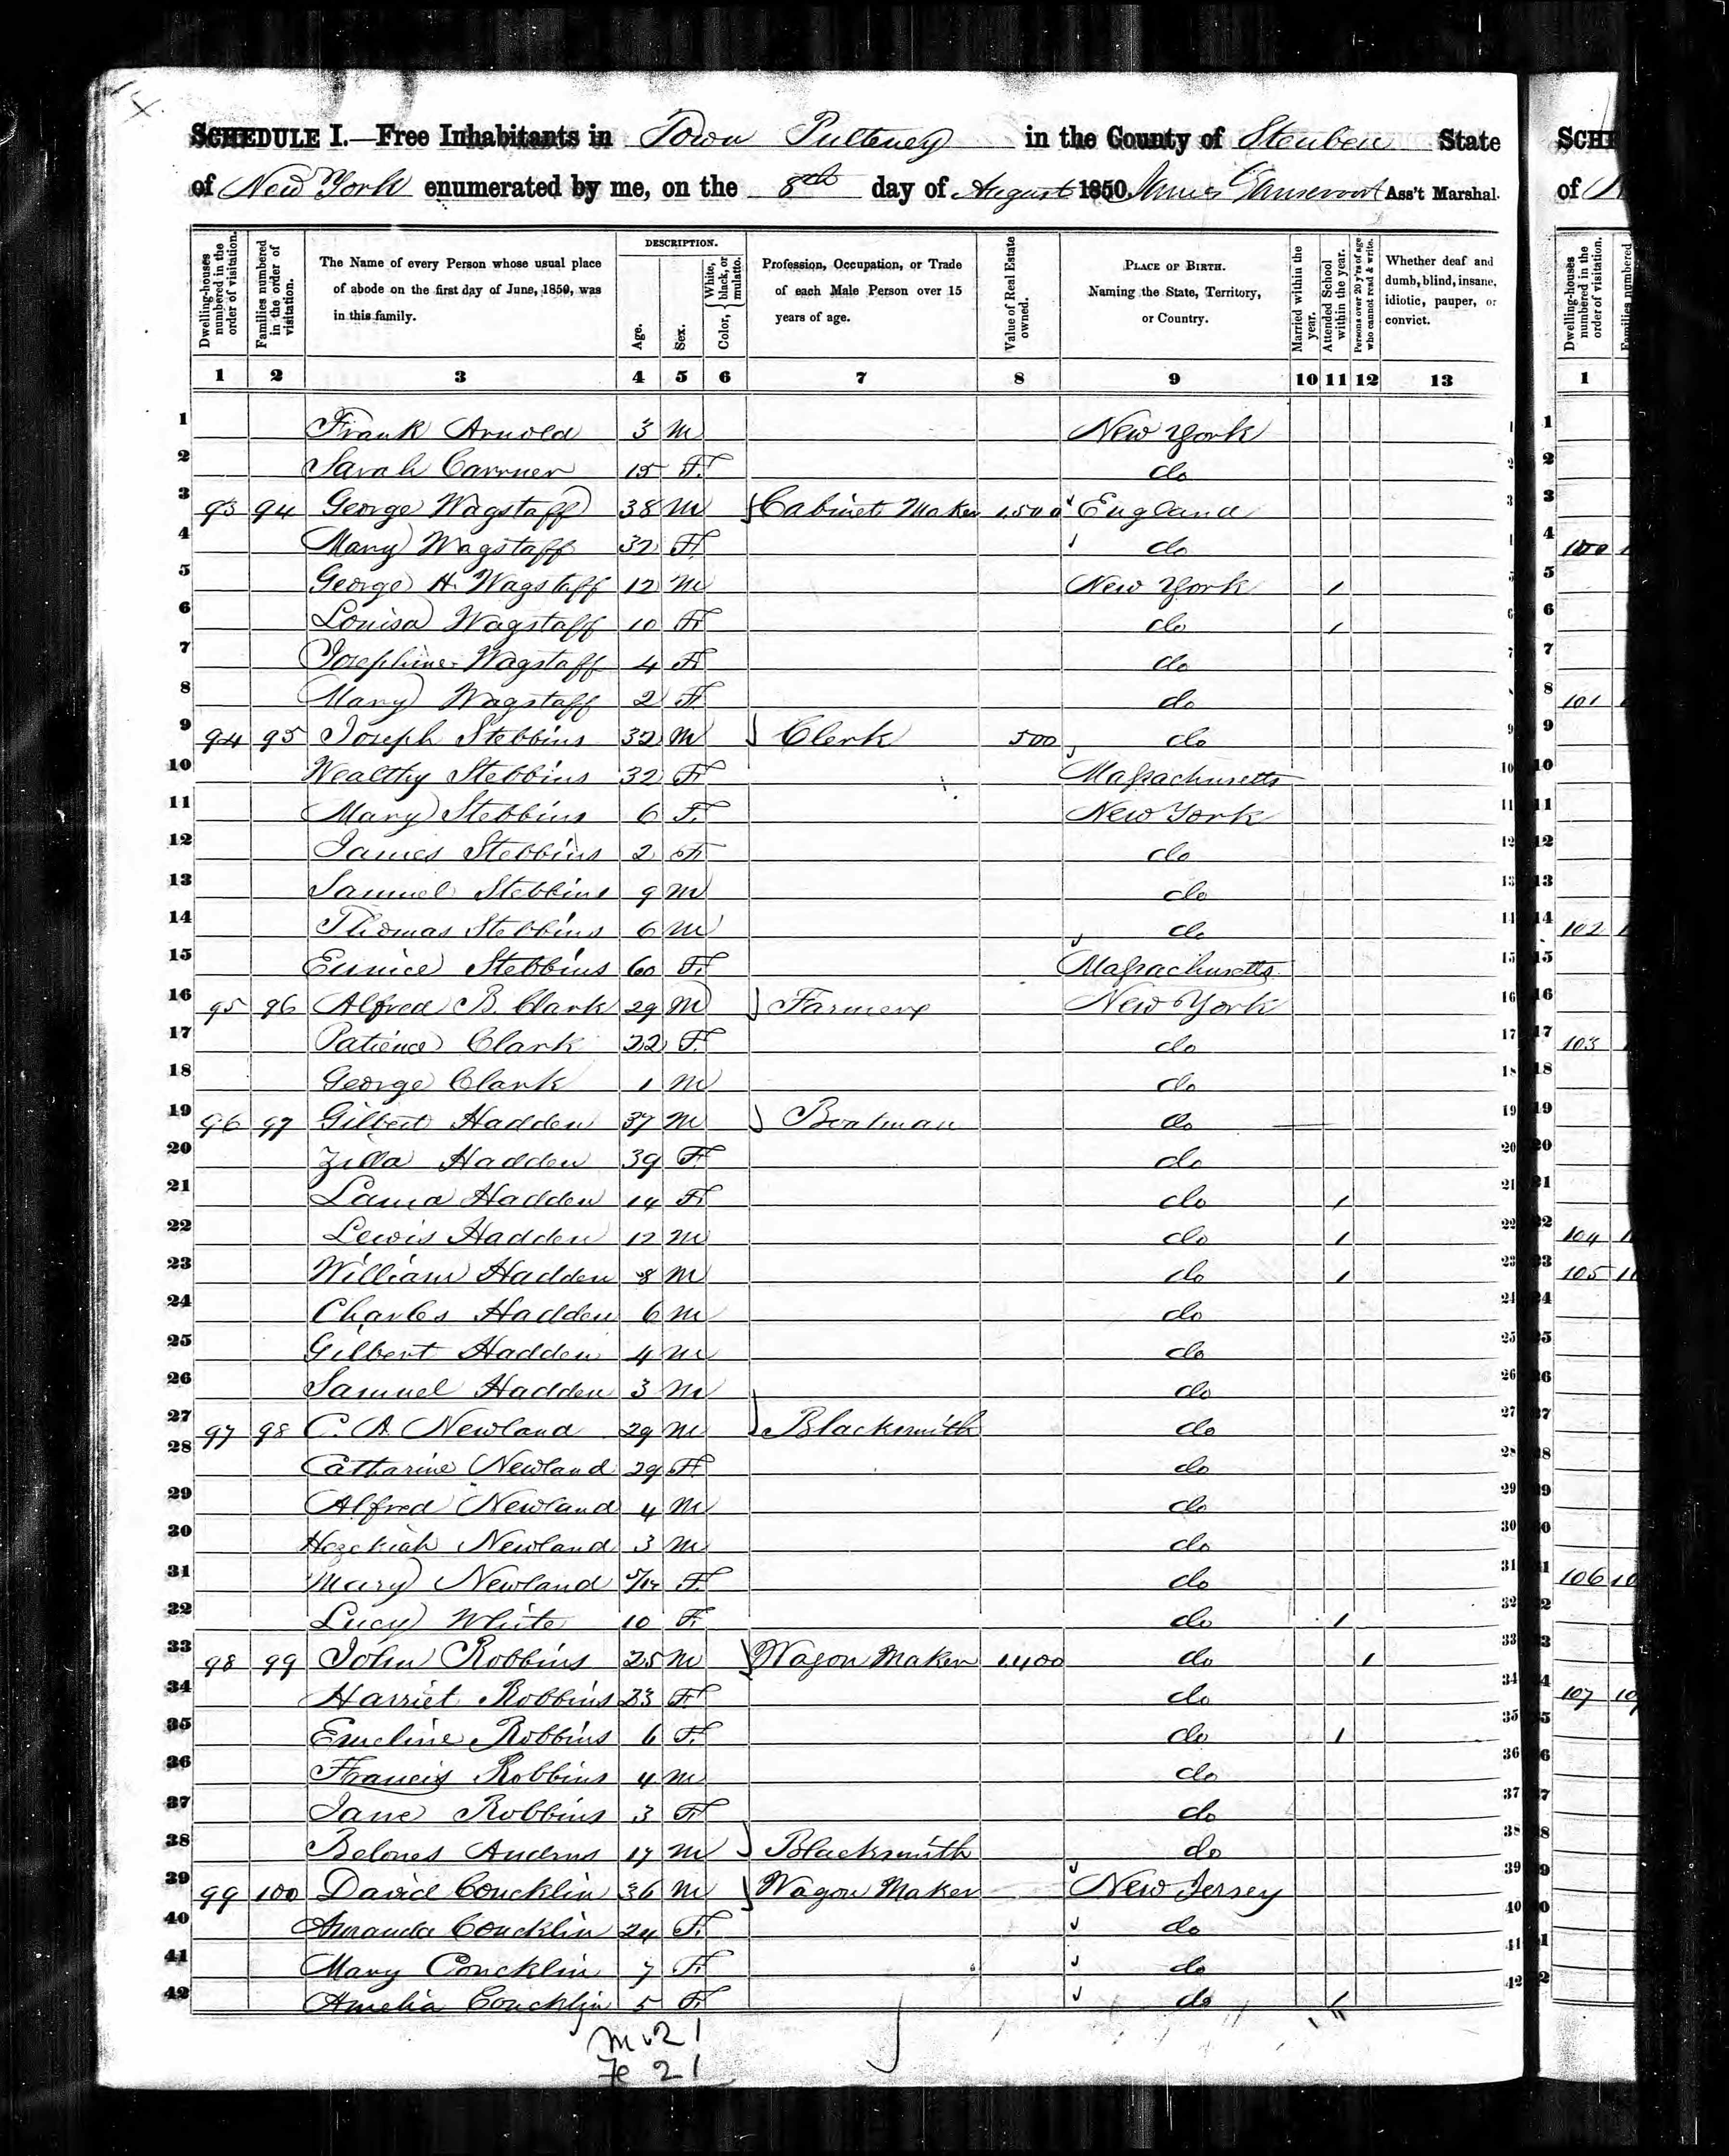 SCHEDULE I.—Free Inhabitants in Town Pulteney in the County of Steuben State
of New York enumerated by me, on the 8th day of August 1850. James Gansevoort Ass't Marshal.
Dwelling-houses numbered in the order of visitation.
Families numbered in the order of visitation.
The Name of every Person whose usual place of abode on the first day of June, 1850, was in this family.
DESCRIPTION.
Age.
Sex.
Color, { White, black, or mulatto.
Profession, Occupation, or Trade of each Male Person over 15 years of age.
Value of Real Estate owned.
PLACE OF BIRTH. Naming the State, Territory, or Country.
Married within the year.
Attended School within the year.
Persons over 20 y'rs of age who cannot read & write.
Whether deaf and dumb, blind, insane, idiotic, pauper, or convict.
1 2 3 4 5 6 7 8 9 10 11 12 13
1 Frank Arnold 3 M New York 1
2 Sarah 15 F. do 2
3 93 94 George Wagstaff 38 M Cabinet Maker 1500 England 3
4 Mary Wagstaff 32 F. do
5 George H. Wagstaff 12 M New York 1 5
6 Louisa Wagstaff 10 F. do 1 6
7 Josephine Wagstaff 4 F. do 7
8 Mary Wagstaff 2 F. do
9 94 95 Joseph Stebbins 32 M Clerk 500 do 9
10 Wealthy Stebbins 32 F. Massachusetts 10
11 Mary Stebbins 6 F. New York 11
12 James Stebbins 2 F. do 12
13 Samuel Stebbins 9 M do 13
14 Thomas Stebbins 6 M do 14
15 Eunice Stebbins 60 F. Massachusetts 15
16 95 96 Alfred B. Clark 29 M Farmer New York 16
17 Patience Clark 22 F. do 17
18 George Clark 1 M do 18
19 96 97 Gilbert Hadden 37 M Boatman do 19
20 Zilla Hadden 39 F. do 20
21 Laura Hadden 14 F. do 1 21
22 Lewis Hadden 12 M do 1 22
23 William Hadden 8 M do 1 23
24 Charles Hadden 6 M do 24
25 Gilbert Hadden 4 M do 25
26 Samuel Hadden 3 M do 26
27 97 98 C. A. Newland 29 M Blacksmith do 27
28 Catharine Newland 29 F. do 28
29 Alfred Newland 4 M do 29
30 Hezekiah Newland 3 M do 30
31 Mary Newland F. do 31
32 Lucy White 10 F. do 1 32
33 98 99 John Robbins 25 M Wagon Maker 1400 do 1 33
34 Harriet Robbins 23 F. do 34
35 Emeline Robbins 6 F. do 1 35
36 Francis Robbins 4 M do 36
37 Jane Robbins 3 F. do 37
38 17 M Blacksmith do 38
39 99 100 David Concklin 36 M Wagon Maker New Jersey 39
40 Amanda Concklin 24 F. do 40
41 Mary Concklin 7 F. do 41
42 Amelia Concklin 5 F. do 1 42
M 21
Fe 21
SCHE
of
Dwelling-houses numbered in the order of visitation.
Families numbered
1
1
2
3
4 100
5
6
7
8 101
9
10
11
12
13
14 102
15
16
17 103
18
19
20
21
22 104
23 105
24
25
26
27
28
29
30
31 106
32
33
34 107
35
36
37
38
39
40
41
42